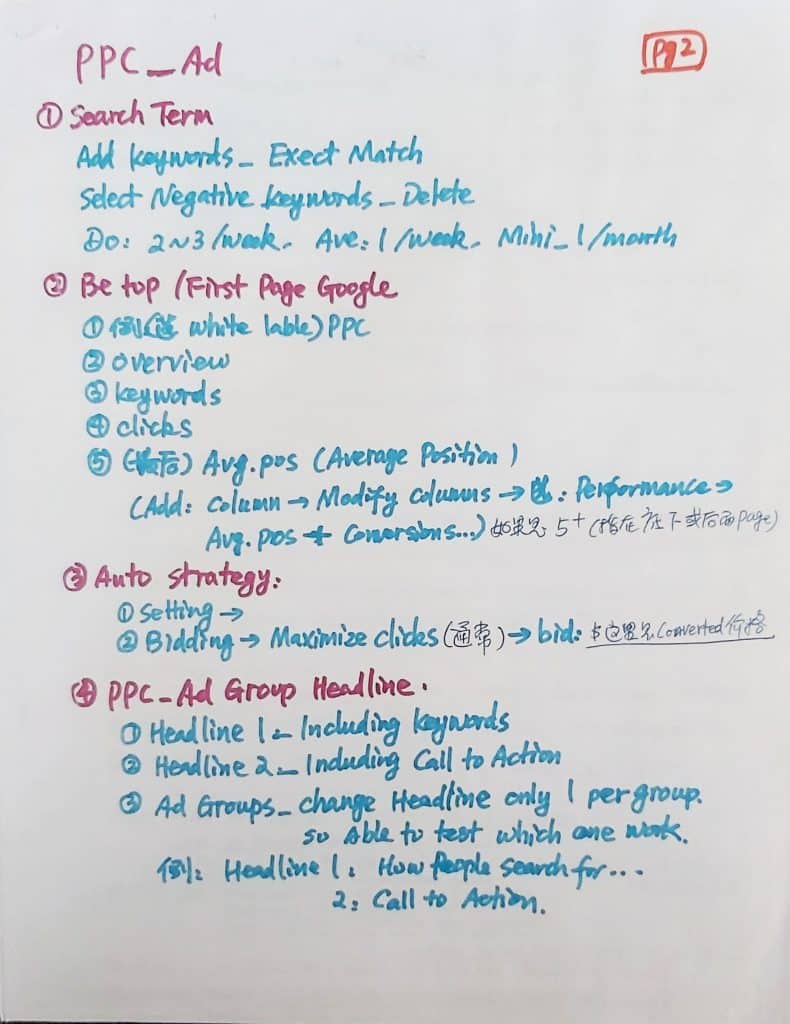 PPC_Ad
Pg2
① Search Term
Add keywords_ Exect Match
Select Negative keywords_ Delete
Do: 2~3/week. Ave: 1/week. Mini_1/month
② Be top /First Page Google
① 例( white lable) PPC
② overview
③ keywords
④ clicks
⑤ (最后) Avg.pos (Average Position)
(Add: column → Modify columns → : Performance →
Avg.pos + Conversions...) 如果是 5+ (指在 下或后面page)
③ Auto strategy:
① Setting →
② Bidding → Maximize clicks (通常) → bid: $这里是Converted价格
④ PPC_Ad Group Headline.
① Headline 1_ Including keywords
② Headline 2_ Including Call to Action
③ Ad Groups_ change Headline only 1 per group.
so Able to test which one work.
例: Headline 1: How People search for...
2: Call to Action.